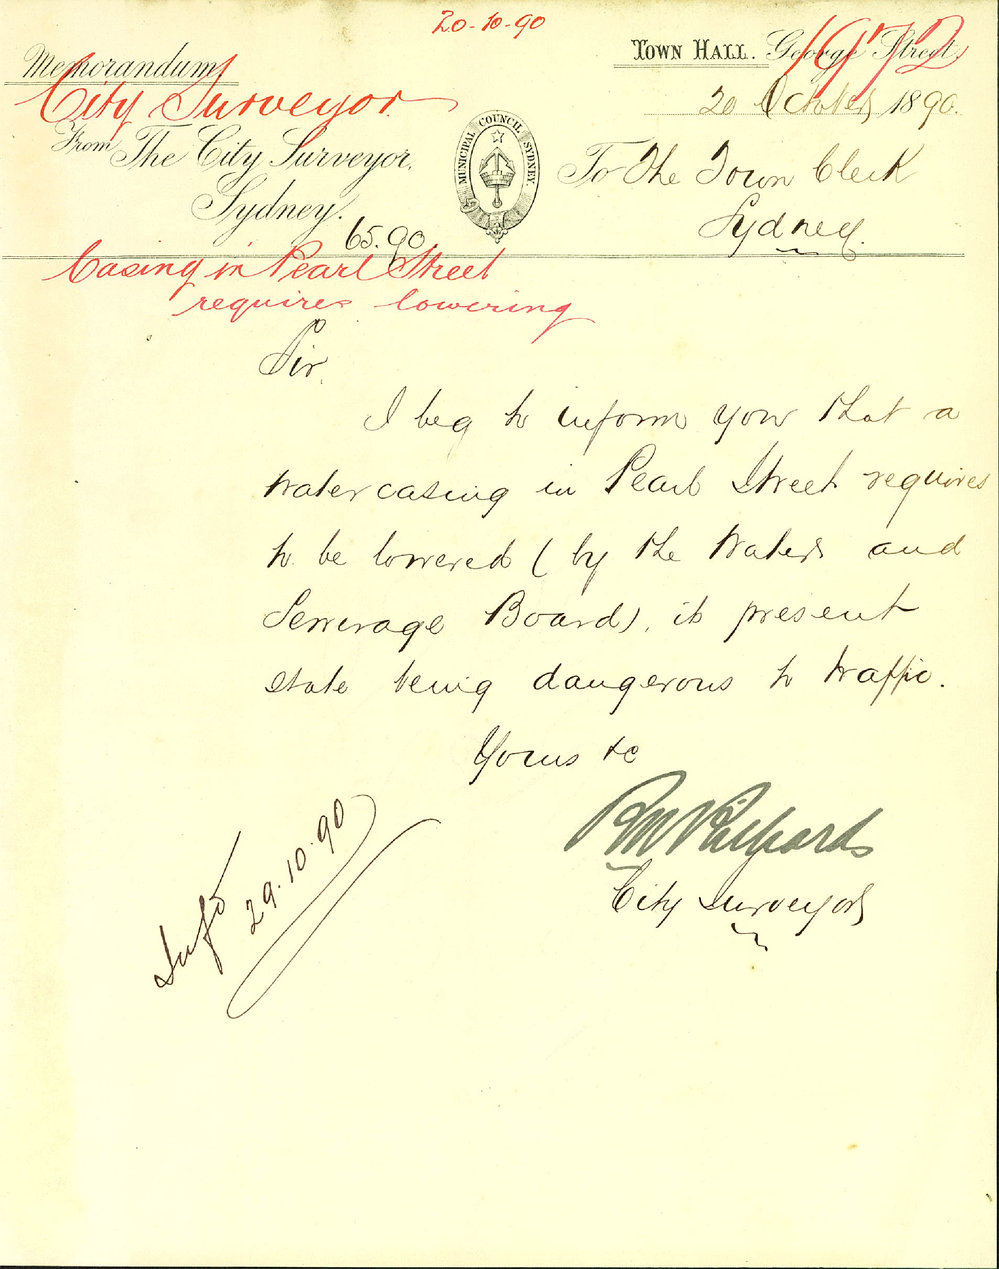 20-10-90
Memorandum
Town Hall. George Street,
1972
City Surveyor
20 October 1890.
From The City Surveyor,
Sydney.
MUNICIPAL COUNCIL SYDNEY
To The Town Clerk
Sydney.
65.90
Casing in Pearl Street
requires lowering
Sir,
I beg to inform you that a
water casing in Pearl Street requires
to be lowered (by the Water and
Sewerage Board), its present
state being dangerous to traffic.
Yours &c
Richards
City Surveyor
29.10.90